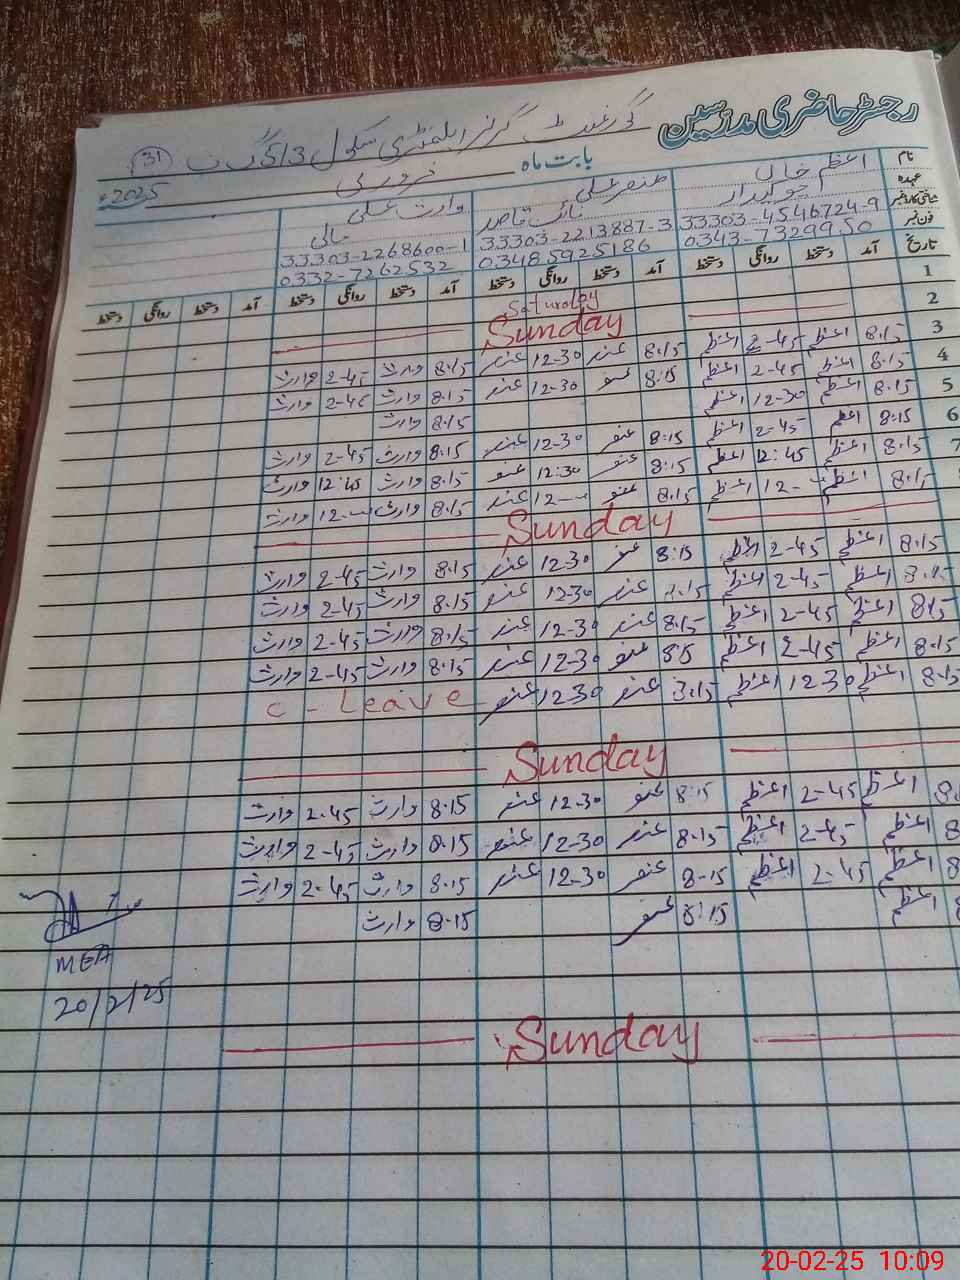 رجسٹر حاضری مدرسین
گورنمنٹ گرلز ایلمنٹری سکول 513 گ ب
31
بابت ماہ فروری
2025ء
نام اعظم خاں وارث علی
عہدہ چوکیدار نائب قاصد مالی
شناختی کارڈ نمبر 33303-4546724-9 33303-2213887-3 33303-2268600-1
فون نمبر 0343-7329950 03485925186 0332-7262532
تاریخ آمد دستخط روانگی دستخط آمد دستخط روانگی دستخط آمد دستخط روانگی دستخط آمد دستخط روانگی دستخط
1 Saturday
2 Sunday
3 8:15 اعظم 2-45 اعظم 8:15 12-30 8:15 وارث 2-45 وارث
4 8:15 اعظم 2-45 اعظم 8:15 12-30 8:15 وارث 2-45 وارث
5 8:15 اعظم 12-30 اعظم 8:15 وارث
6 8:15 اعظم 2-45 اعظم 8:15 12-30 8:15 وارث 2-45 وارث
7 8:15 اعظم 12:45 اعظم 8:15 12:30 8:15 وارث 12:45 وارث
8:15 اعظم 12- اعظم 8:15 12- 8:15 وارث 12- وارث
Sunday
8:15 اعظم 2-45 اعظم 8:15 12-30 8:15 وارث 2-45 وارث
8:15 اعظم 2-45 اعظم 8:15 12-30 8:15 وارث 2-45 وارث
8:15 اعظم 2-45 اعظم 8:15 12-30 8:15 وارث 2-45 وارث
8:15 اعظم 2-45 اعظم 8:15 12-30 8:15 وارث 2-45 وارث
8:15 اعظم 12-30 اعظم 8:15 12-30 C-Leave
Sunday
اعظم 2-45 اعظم 8:15 12-30 8:15 وارث 2-45 وارث
اعظم 2-45 اعظم 8:15 12-30 8:15 وارث 2-45 وارث
اعظم 2-45 اعظم 8-15 12-30 8:15 وارث 2-45 وارث
اعظم 8:15 8:15 وارث
MEA
20/2/25
Sunday
20-02-25 10:09